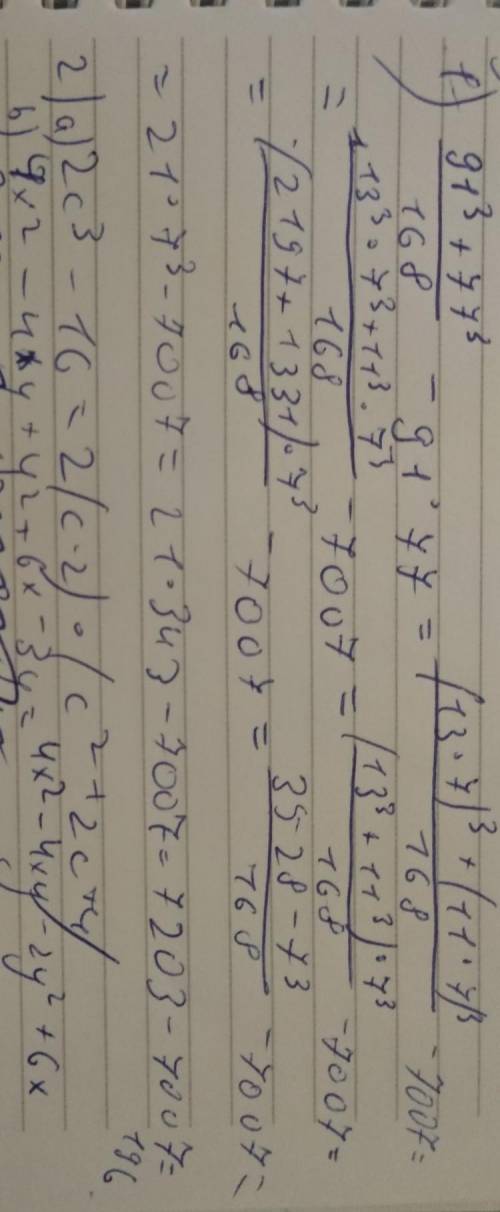 1.) (91³ + 77³)/168 - 91 · 77 = ((13 · 7)³ + (11 · 7)³)/168 - 7007 =
= (13³ · 7³ + 11³ · 7³)/168 - 7007 = ((13³ + 11³) · 7³)/168 - 7007 =
= ((2197 + 1331) · 7³)/168 - 7007 = (3528 - 7³)/168 - 7007 =
= 21 · 7³ - 7007 = 21 · 343 - 7007 = 7203 - 7007 =
196
2) a) 2c³ - 16 = 2(c - 2) · (c² + 2c + 4)
b) 4x² - 4xy + y² + 6x - 3y = 4x² - 4xy - 2y² + 6x